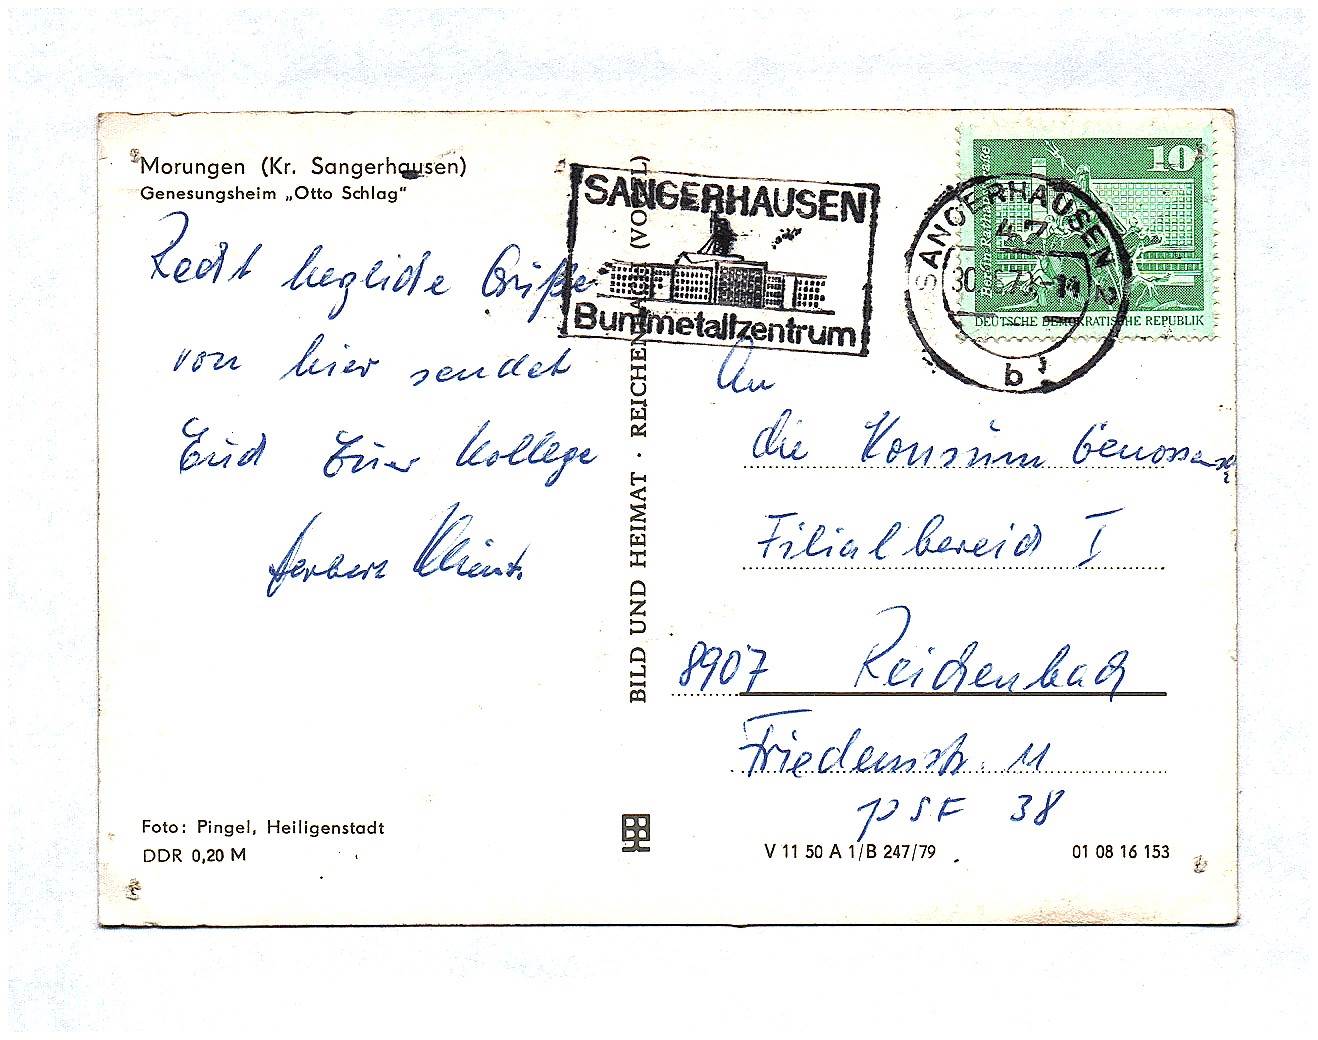 Morungen (Kr. Sangerhausen)
Genesungsheim „Otto Schlag“
Recht herzliche Grüße
von hier sendet
Euch Euer Kollege
Herbert
Foto: Pingel, Heiligenstadt
DDR 0,20 M
BILD UND HEIMAT · REICHENBACH (VOGTL)
SANGERHAUSEN
Buntmetallzentrum
SANGERHAUSEN 2
47
30
b
10
Berlin Rathausstraße
DEUTSCHE DEMOKRATISCHE REPUBLIK
An
die Konsum Genossensch
Filialbereich I
8907 Reichenbach
Friedensstr. 11
PSF 38
V 11 50 A 1/B 247/79
01 08 16 153